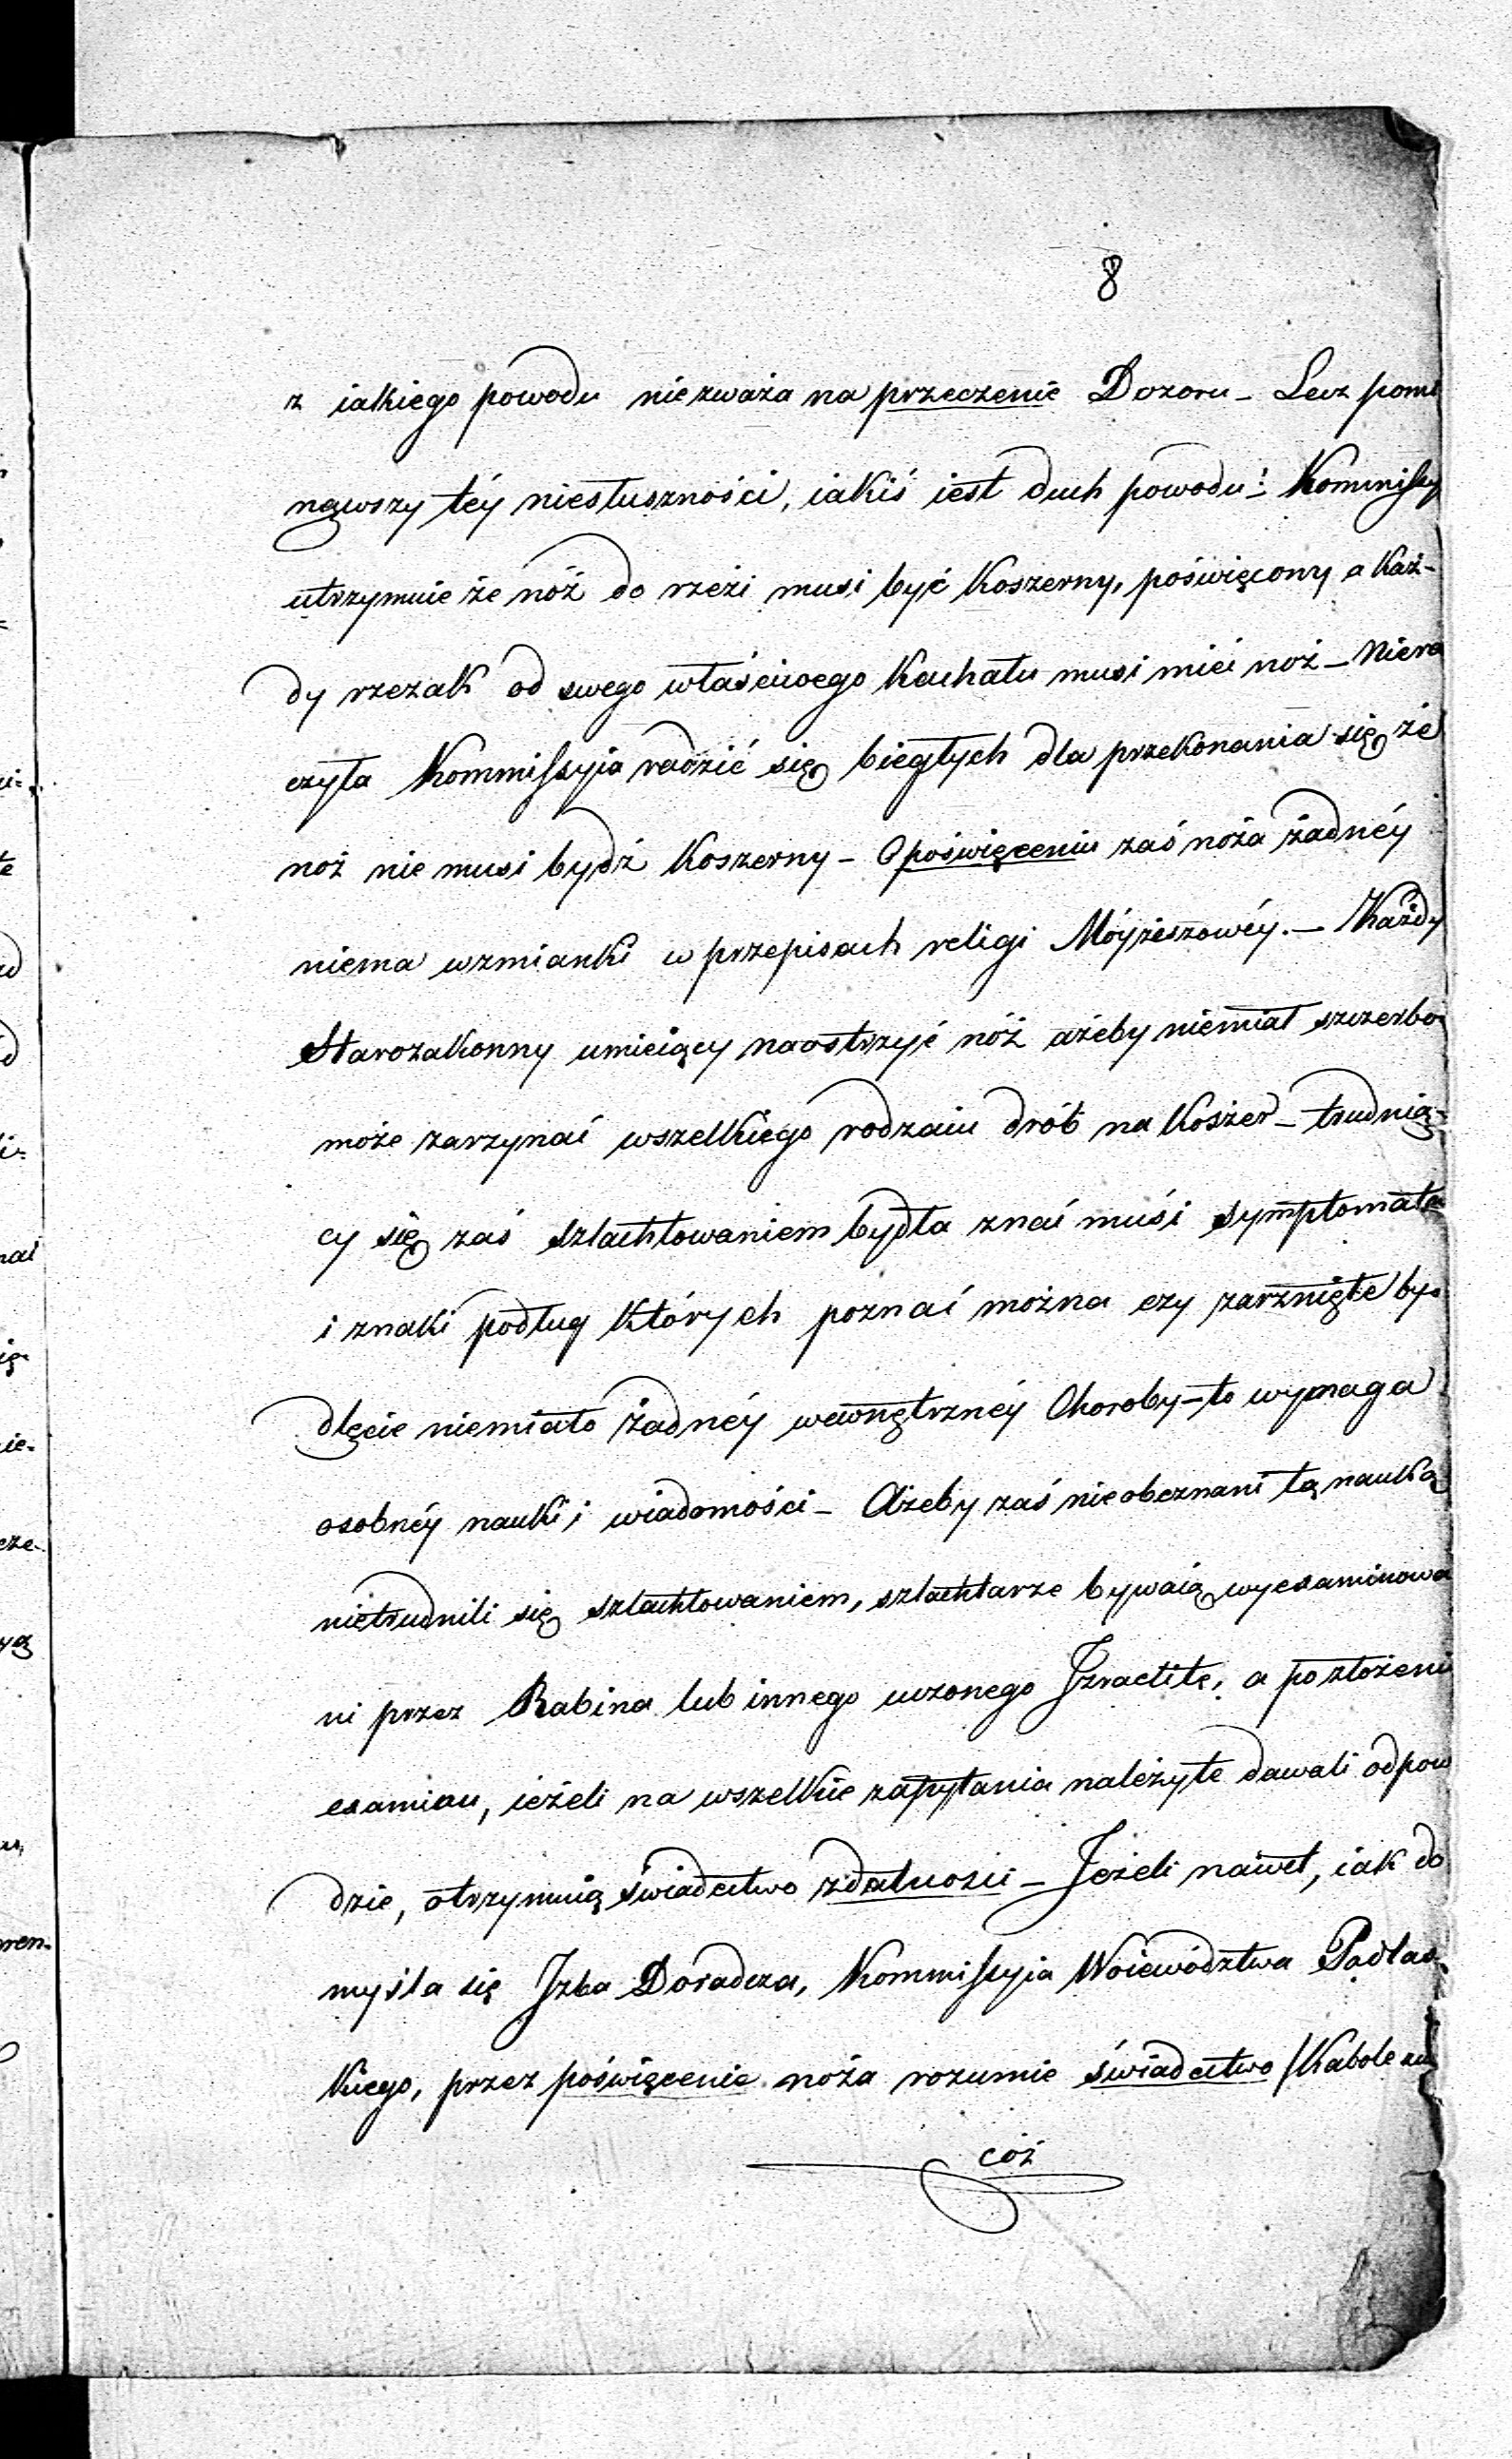 8
z iakiego powodu niezważa na przeczenie Dozoru – Lecz pomi
nąwszy téy niesłuszności, iakiś iest duch powodu: Kommissy
utrzymuie że nóż do rzeżi musi być Koszerny, poświęcony a Każ-
dy rzezak od swego właściwego Kachału musi mieć noż – Niera
czyła Kommissyia radzić się biegłych dla przekonania się że
noż nie musi bydź Koszerny – O poświęceniu zaś noża żadnéy
niema wzmianki w przepisach religi Móyżeszowéy. – Każdy
Starozakonny umieiący naostrzyć nóż ażeby niemiał szczerbo
może zarzynać wszelkiego rodzaiu drób na Koszer – trudnią-
cy się zaś szlachtowaniem bydła znać musi symptomata
i znaki podług których poznać można czy zarznięte by-
dlęcie niemiało żadnéy wewnętrznéy Choroby – to wymaga
osobnéy nauki i wiadomości – Ażeby zaś nieobeznani tą nauką
nietrudnili się szlachtowaniem, szlachtarze bywaią wyexaminowa
ni przez Rabina lub innego uczonego Izraelitę, a po złożeniu
examinu, ieżeli na wszelkie zapytania należyte dawali odpow
dzie, otrzymuią świadectwo zdatności – Jeżeli nawet, iak do
myśla się Izba Doradcza, Kommissyia Woiewództwa Podlas-
kiego, przez poświęcenie noża rozumie świadectwo /Kabole
cóż